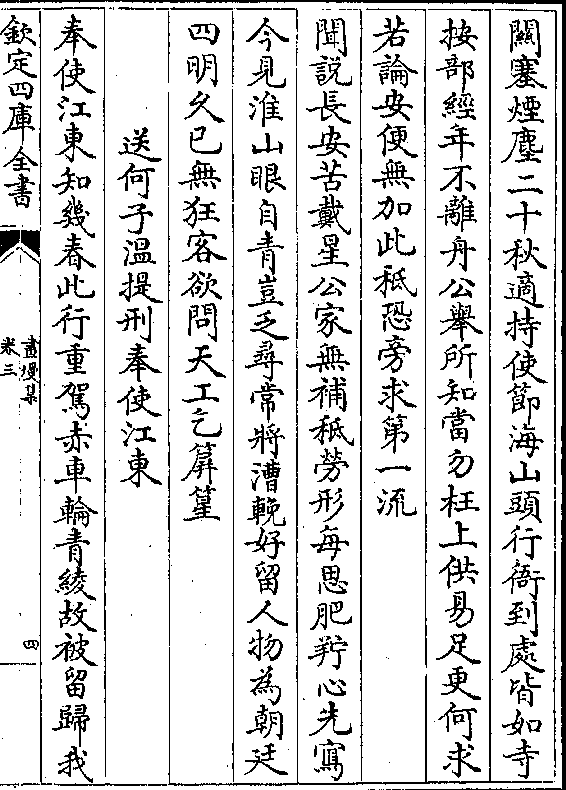 關塞煙塵二十秋適持使節海山頭行衙到處皆如寺
按部經年不離舟公舉所知當勿枉上供易足更何求
若論安便無加此秪恐旁求第一流
聞説長安苦戴星公家無補秪勞形每思肥羜心先寫
今見淮山眼自青豈乏尋常將漕輓好留人物為朝廷
四明久已無狂客欲問天工乞屏篁
送何子溫提刑奉使江東
奉使江東知幾春此行重駕赤車輪青綾故被留歸我
欽定四庫全書
畫墁集
卷三
四